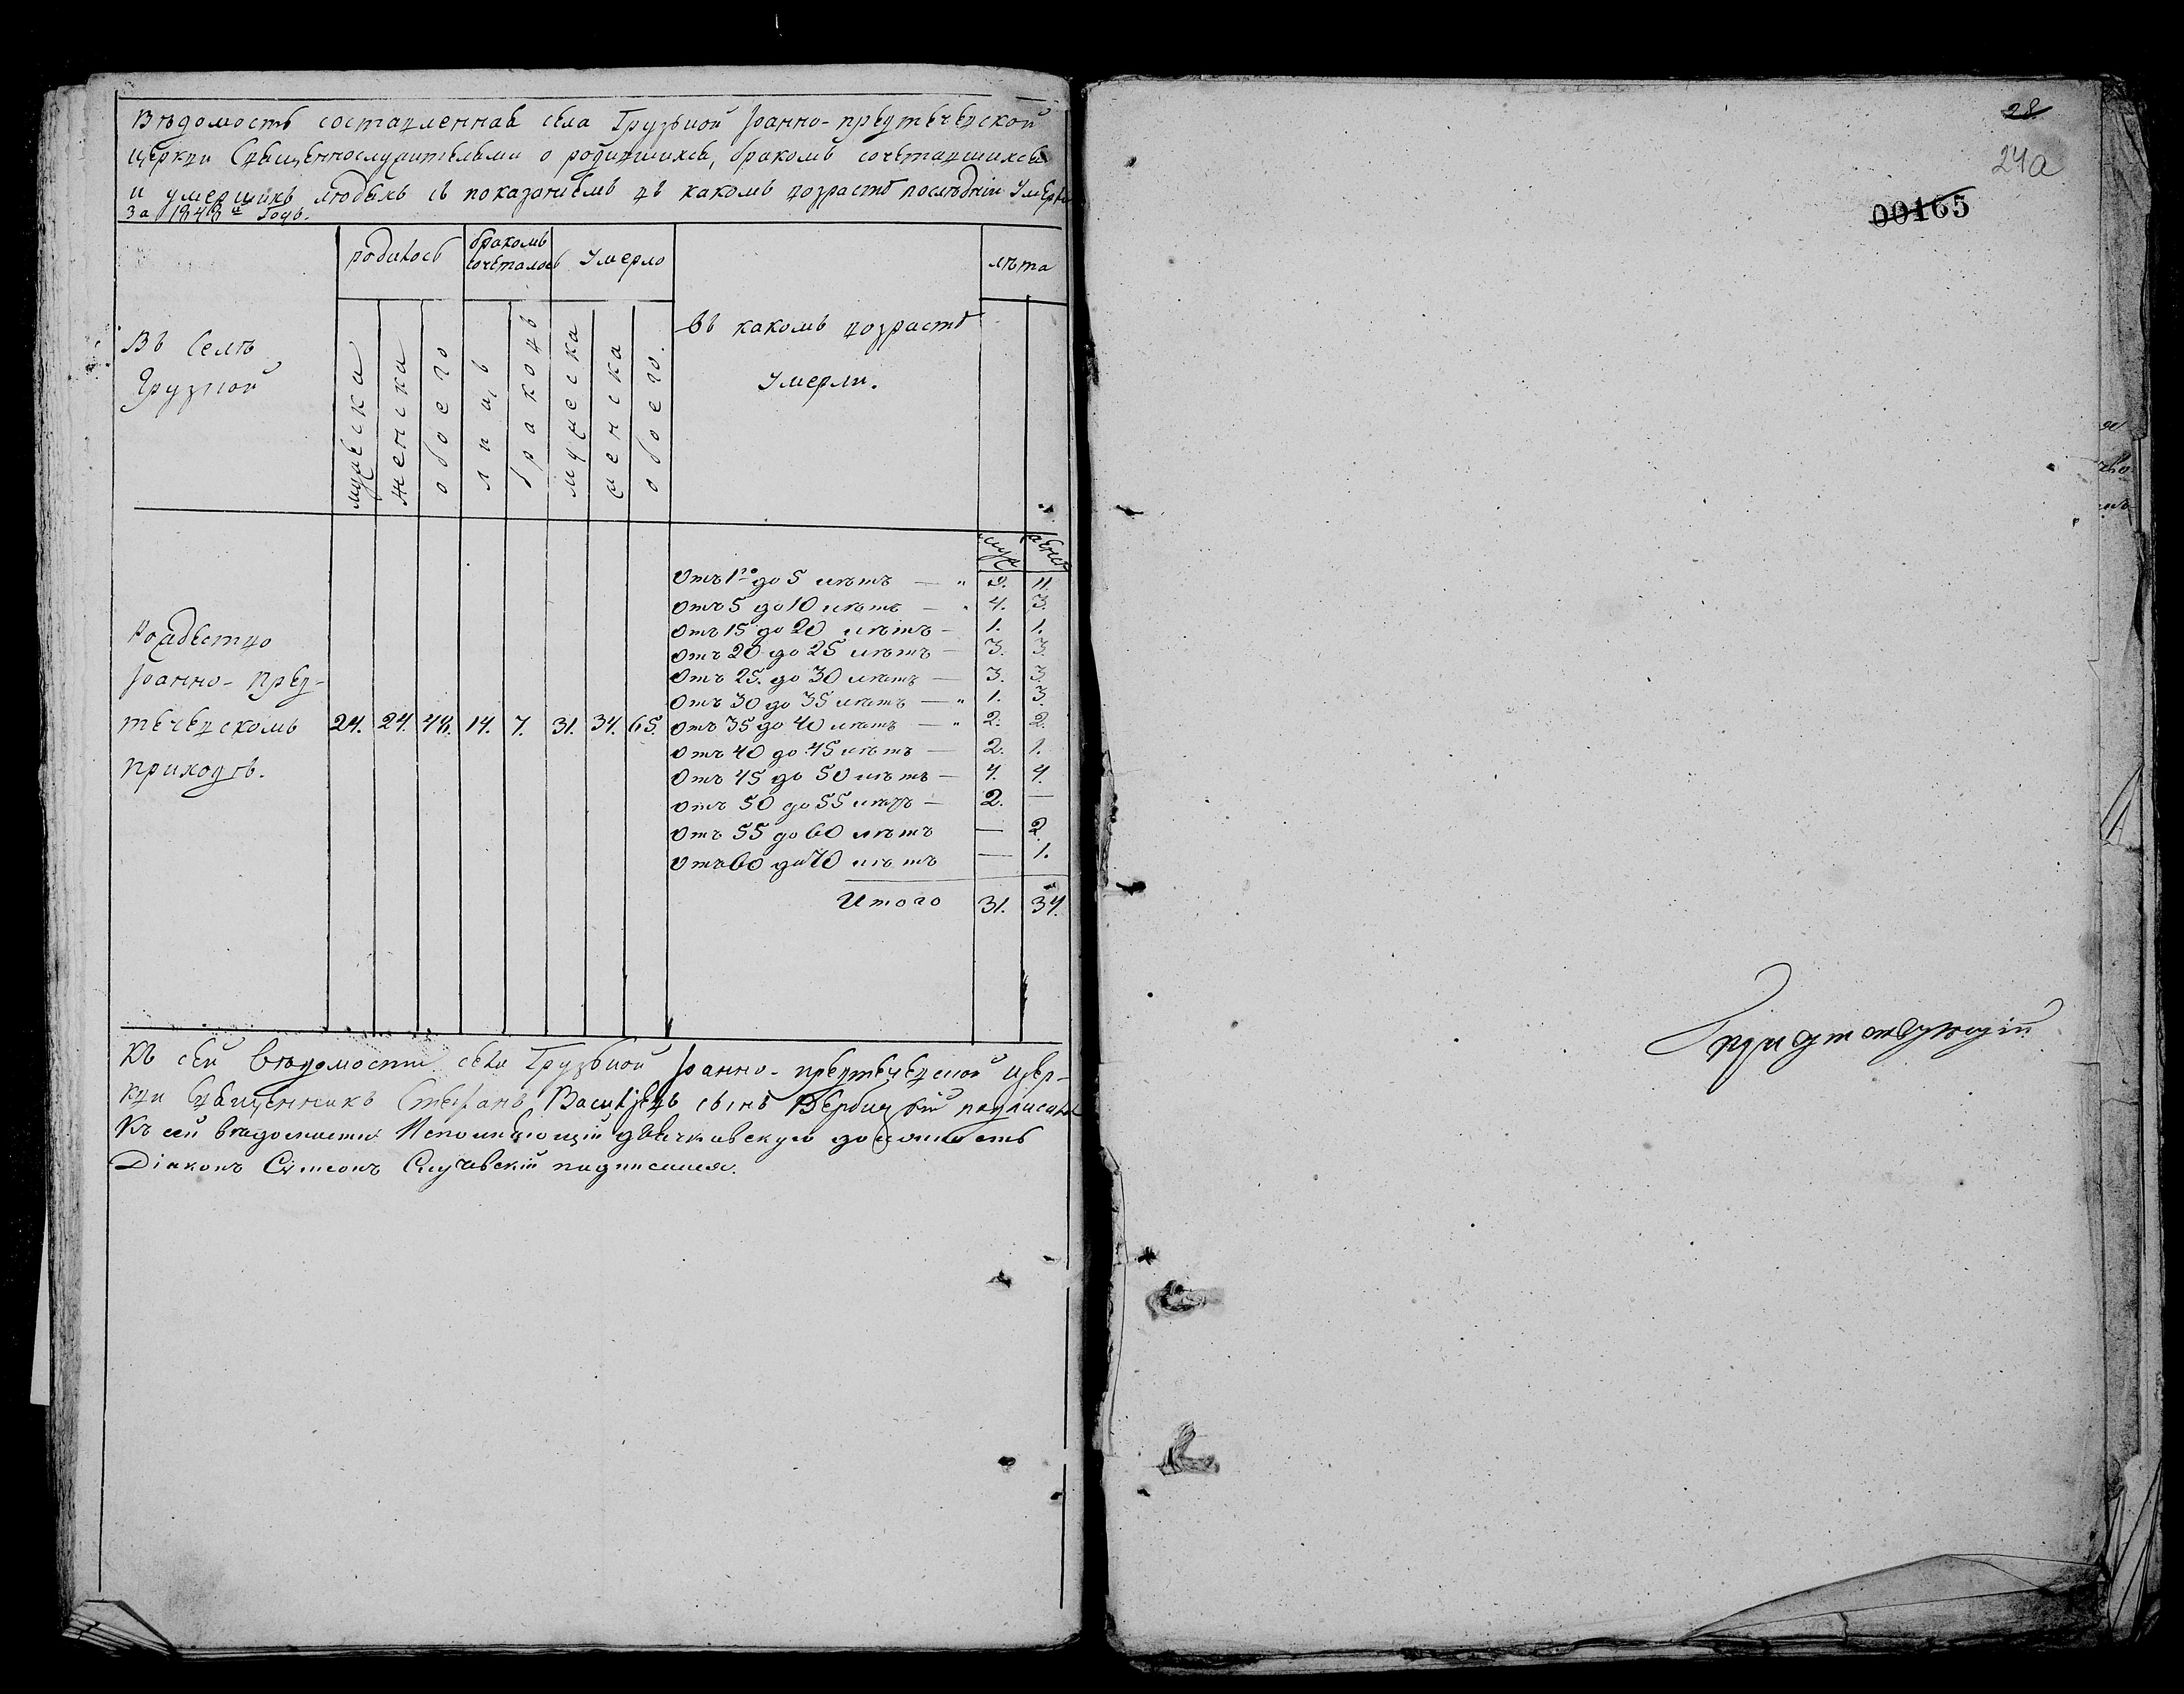 Вѣдомость составленная села Грузьной Іоанно-предтечевской
церкви Священнослужительми о родившихся, бракомъ сочетавшихся
и умершихъ людыхъ съ показаніемъ въ какомъ возрастѣ послѣдніи Умерли
За 1848й Годъ.
Въ Селѣ
Грузной
родилось
бракомъ
сочеталось
Умерло
лѣта
мужеска
женска
обоего
лицъ
браковъ
мужеска
женска
обоего.
въ какомъ возрастѣ
Умерли.
муж
женс
Отъ 1го до 5 лѣтъ — " 9. 11.
Отъ 5 до 10 лѣтъ — " 4. 3.
Отъ 15 до 20 лѣтъ — 1. 1.
Отъ 20 до 25 лѣтъ — 3. 3.
Отъ 25. до 30 лѣтъ — 3. 3.
Отъ 30 до 35 лѣтъ — " 1. 3.
Рождество
Іоанно-Пред-
течевскомъ 24. 24. 48. 14. 7. 31. 34. 65. Отъ 35 до 40 лѣтъ — " 2. 2.
приходѣ.
Отъ 40 до 45 лѣтъ — 2. 1.
Отъ 45 до 50 лѣтъ — 4. 4.
Отъ 50 до 55 лѣтъ — 2. —
Отъ 55 до 60 лѣтъ — 2.
Отъ 60 до 70 лѣтъ — 1.
Итого 31. 34.
Къ сей Вѣдомости села Грузьной Іоанно-предтечевской цер-
кви Священникъ Стефанъ Васильевъ сынъ Вербицкій подписался
Къ сей вѣдомости Исполняющій дьячковскую должность
Діаконъ Симеонъ Случевскій подписался.
28
24а
00165